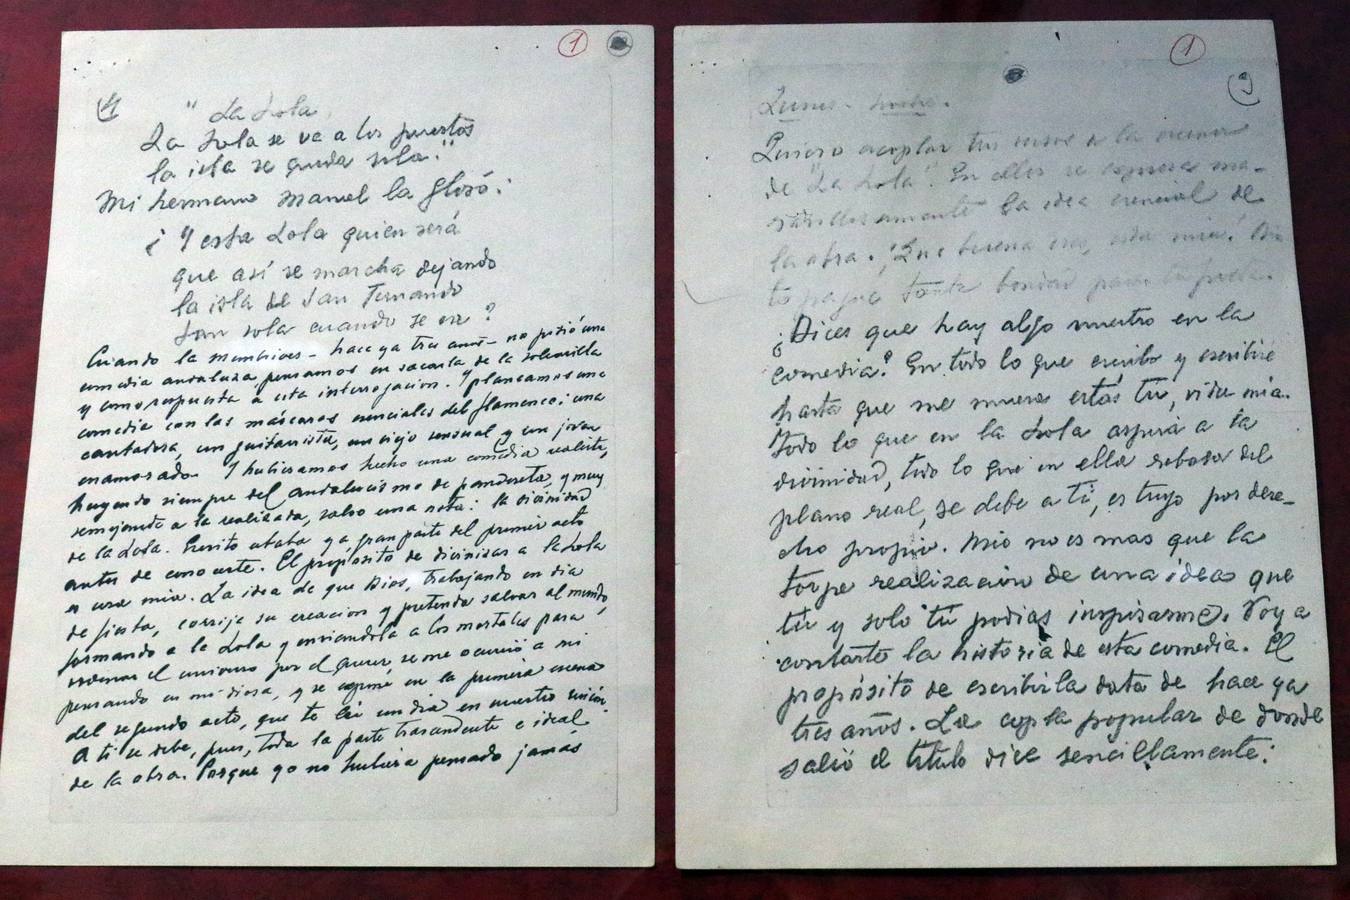 1
4
" La Lola
La Lola se va a los puertos
la isla se queda sola."
Mi hermano Manuel la glosó:
¿Y esta Lola quien será
que así se marcha dejando
la isla de San Fernando
tan sola cuando se va?
Cuando la Membrives - hace ya tres años - no pidió una
comedia andaluza, pensamos en sacarla de la solearilla
y como respuesta a esta interrogacion. Y planeamos una
comedia con las máscaras esenciales del flamenco: una
cantadora, un guitarrista, un viejo sensual y un joven
enamorado. Y hubieramos hecho una comedia realista,
huyendo siempre del andalucismo de pandereta, y muy
semejante a la realizada, salvo una nota: la divinidad
de la Lola. Escrito estaba ya gran parte del primer acto
antes de conocerte. El propósito de divinizar a la Lola
es cosa mia. La idea de que Dios, trabajando en dia
de fiesta, corrije su creacion y pretende salvar al mundo,
formando a la Lola y enviandola a los mortales para
ordenar el universo por el querer se me ocurrió a mi
pensando en mi diosa, y se esprime en la primera escena
del segundo acto, que te leí un dia en nuestro rincón.
A ti se debe, pues, toda la parte trascendente e ideal
de la obra. Porque yo no hubiera pensado jamás
1
Lunes - noche.
Quiero acoplar tus versos a la escena
de "La Lola". En ellos se expresa ma-
ravillosamente la idea esencial de
la obra. ¡Que buena eres, vida mia! Dios
te pague tanta bondad para tu poeta.
¿Dices que hay algo nuestro en la
comedia? En todo lo que escribo y escribiré
hasta que me muera estás tú, vida mia.
Todo lo que en la Lola aspira a la
divinidad, todo lo que en ella rebasa del
plano real, se debe a ti, es tuyo por dere-
cho propio. Mio no es mas que la
torpe realización de una ideas que
tú y solo tú podias inspirarme. Voy a
contarte la historia de esta comedia. El
propósito de escribirla data de hace ya
tres años. La copla popular de donde
salió el titulo dice sencillamente: